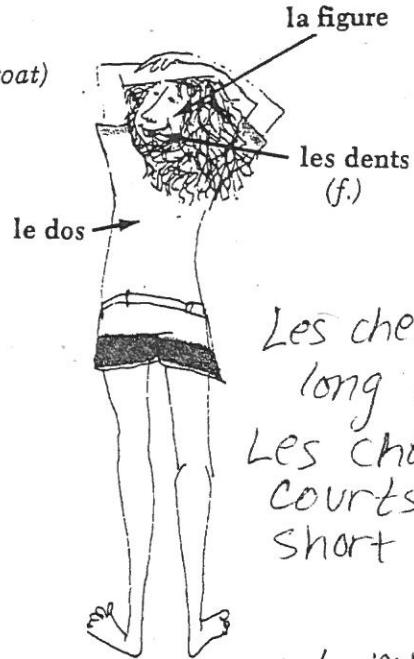 la figure
oat)
les dents
(f.)
le dos
Les che
long
Les cho
courts
short